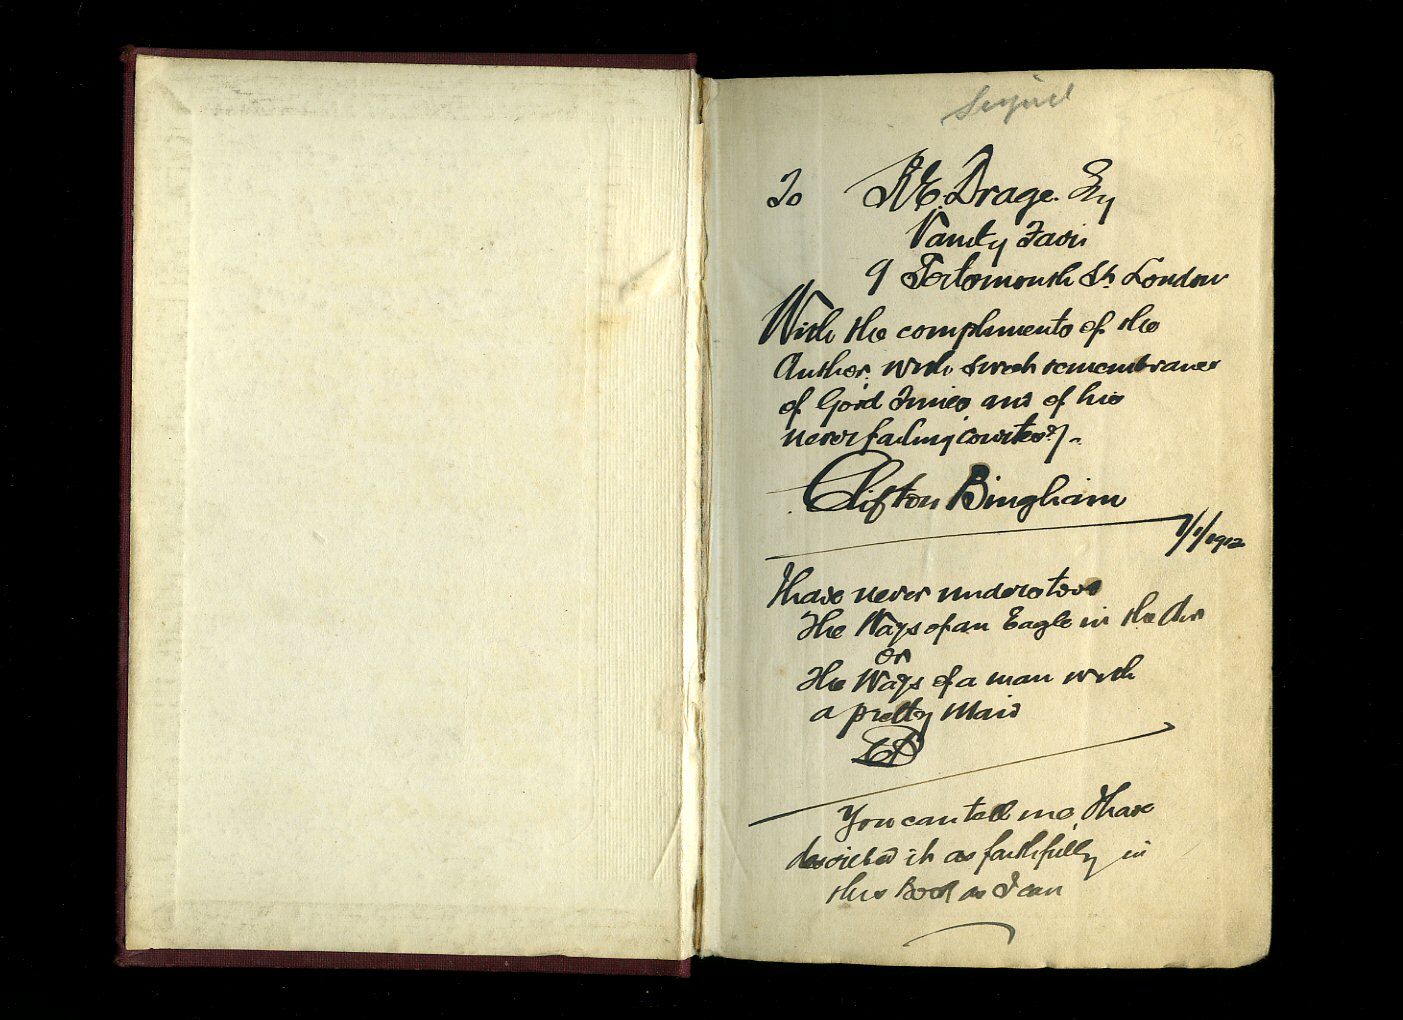 Signed
To
A.E. Drage. Esq
Vanity Fair
9 Tortomouth St. London
With the compliments of the
Author, with sweet remembrances
of Good Times and of his
never failing courtesy.
Clifton Bingham
1/1/1912
I have never understood
The Ways of an Eagle in the Air
or
The Ways of a man with
a pretty Maid
You can tell me, I have
described it as faithfully in
this Book as I can